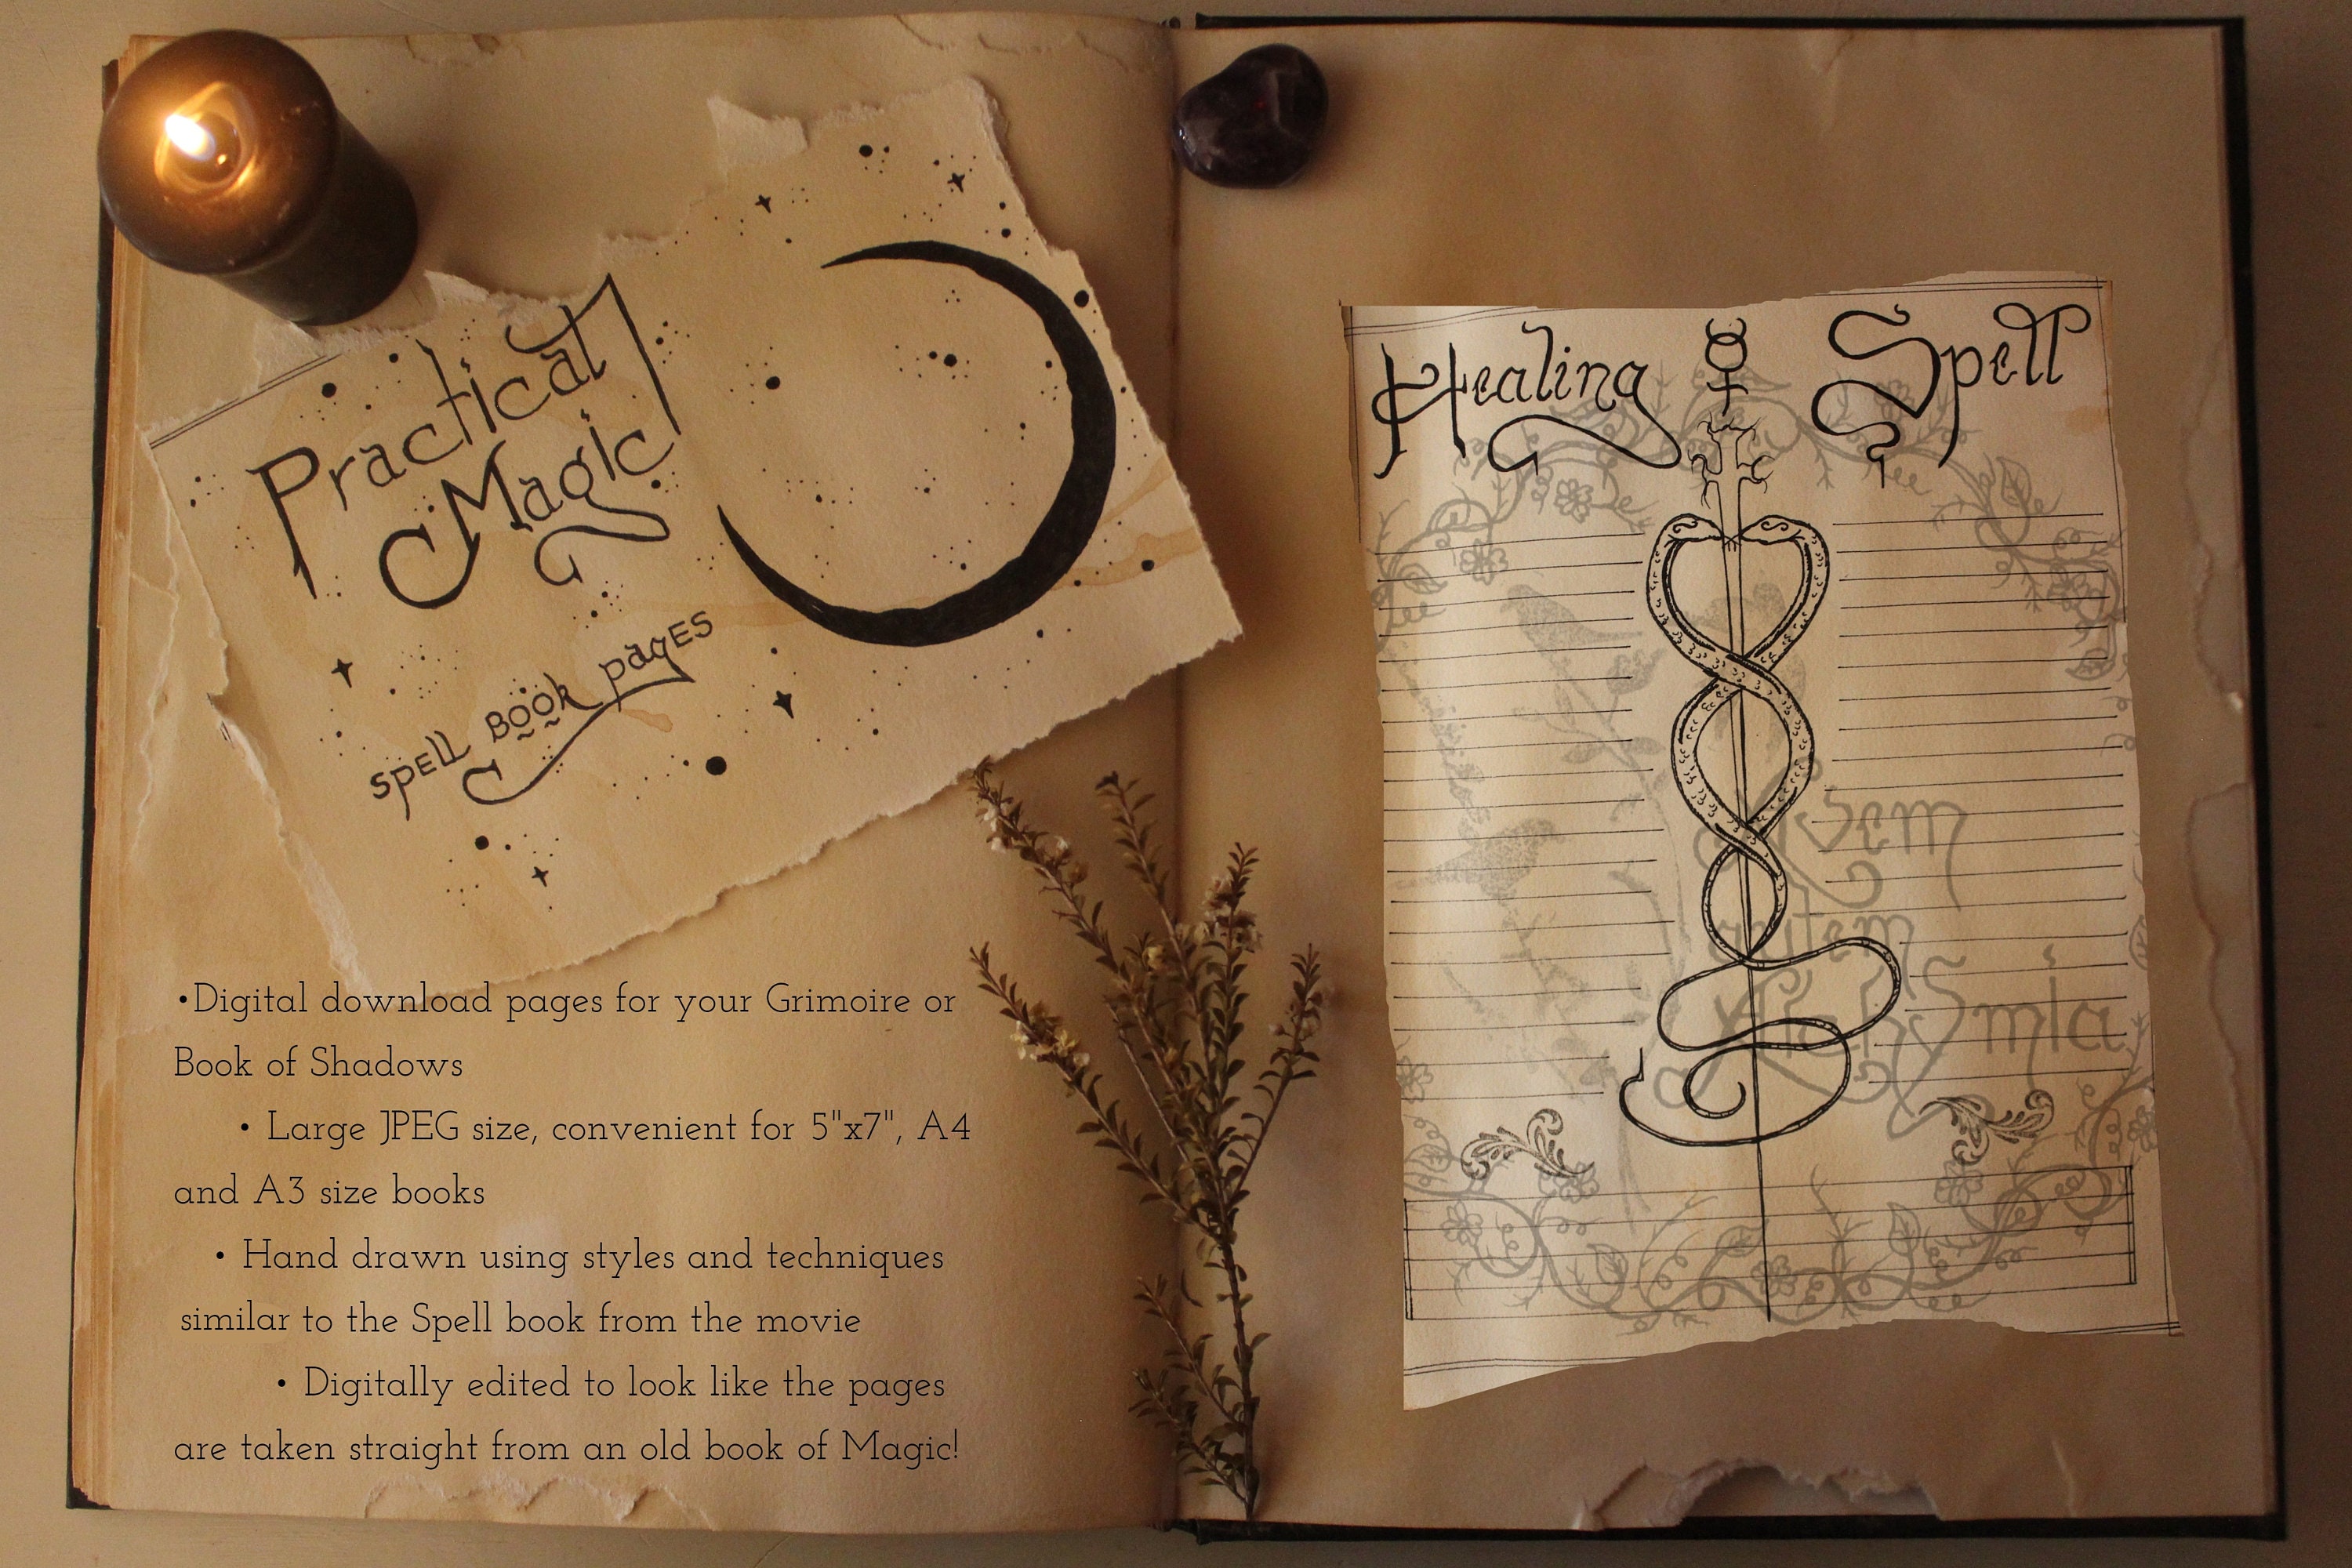 Practical
Magic
spell Book pages
•Digital download pages for your Grimoire or
Book of Shadows
• Large JPEG size, convenient for 5"x7", A4
and A3 size books
• Hand drawn using styles and techniques
similar to the Spell book from the movie
• Digitally edited to look like the pages
are taken straight from an old book of Magic!
Healing Spell
autem
Alchymia